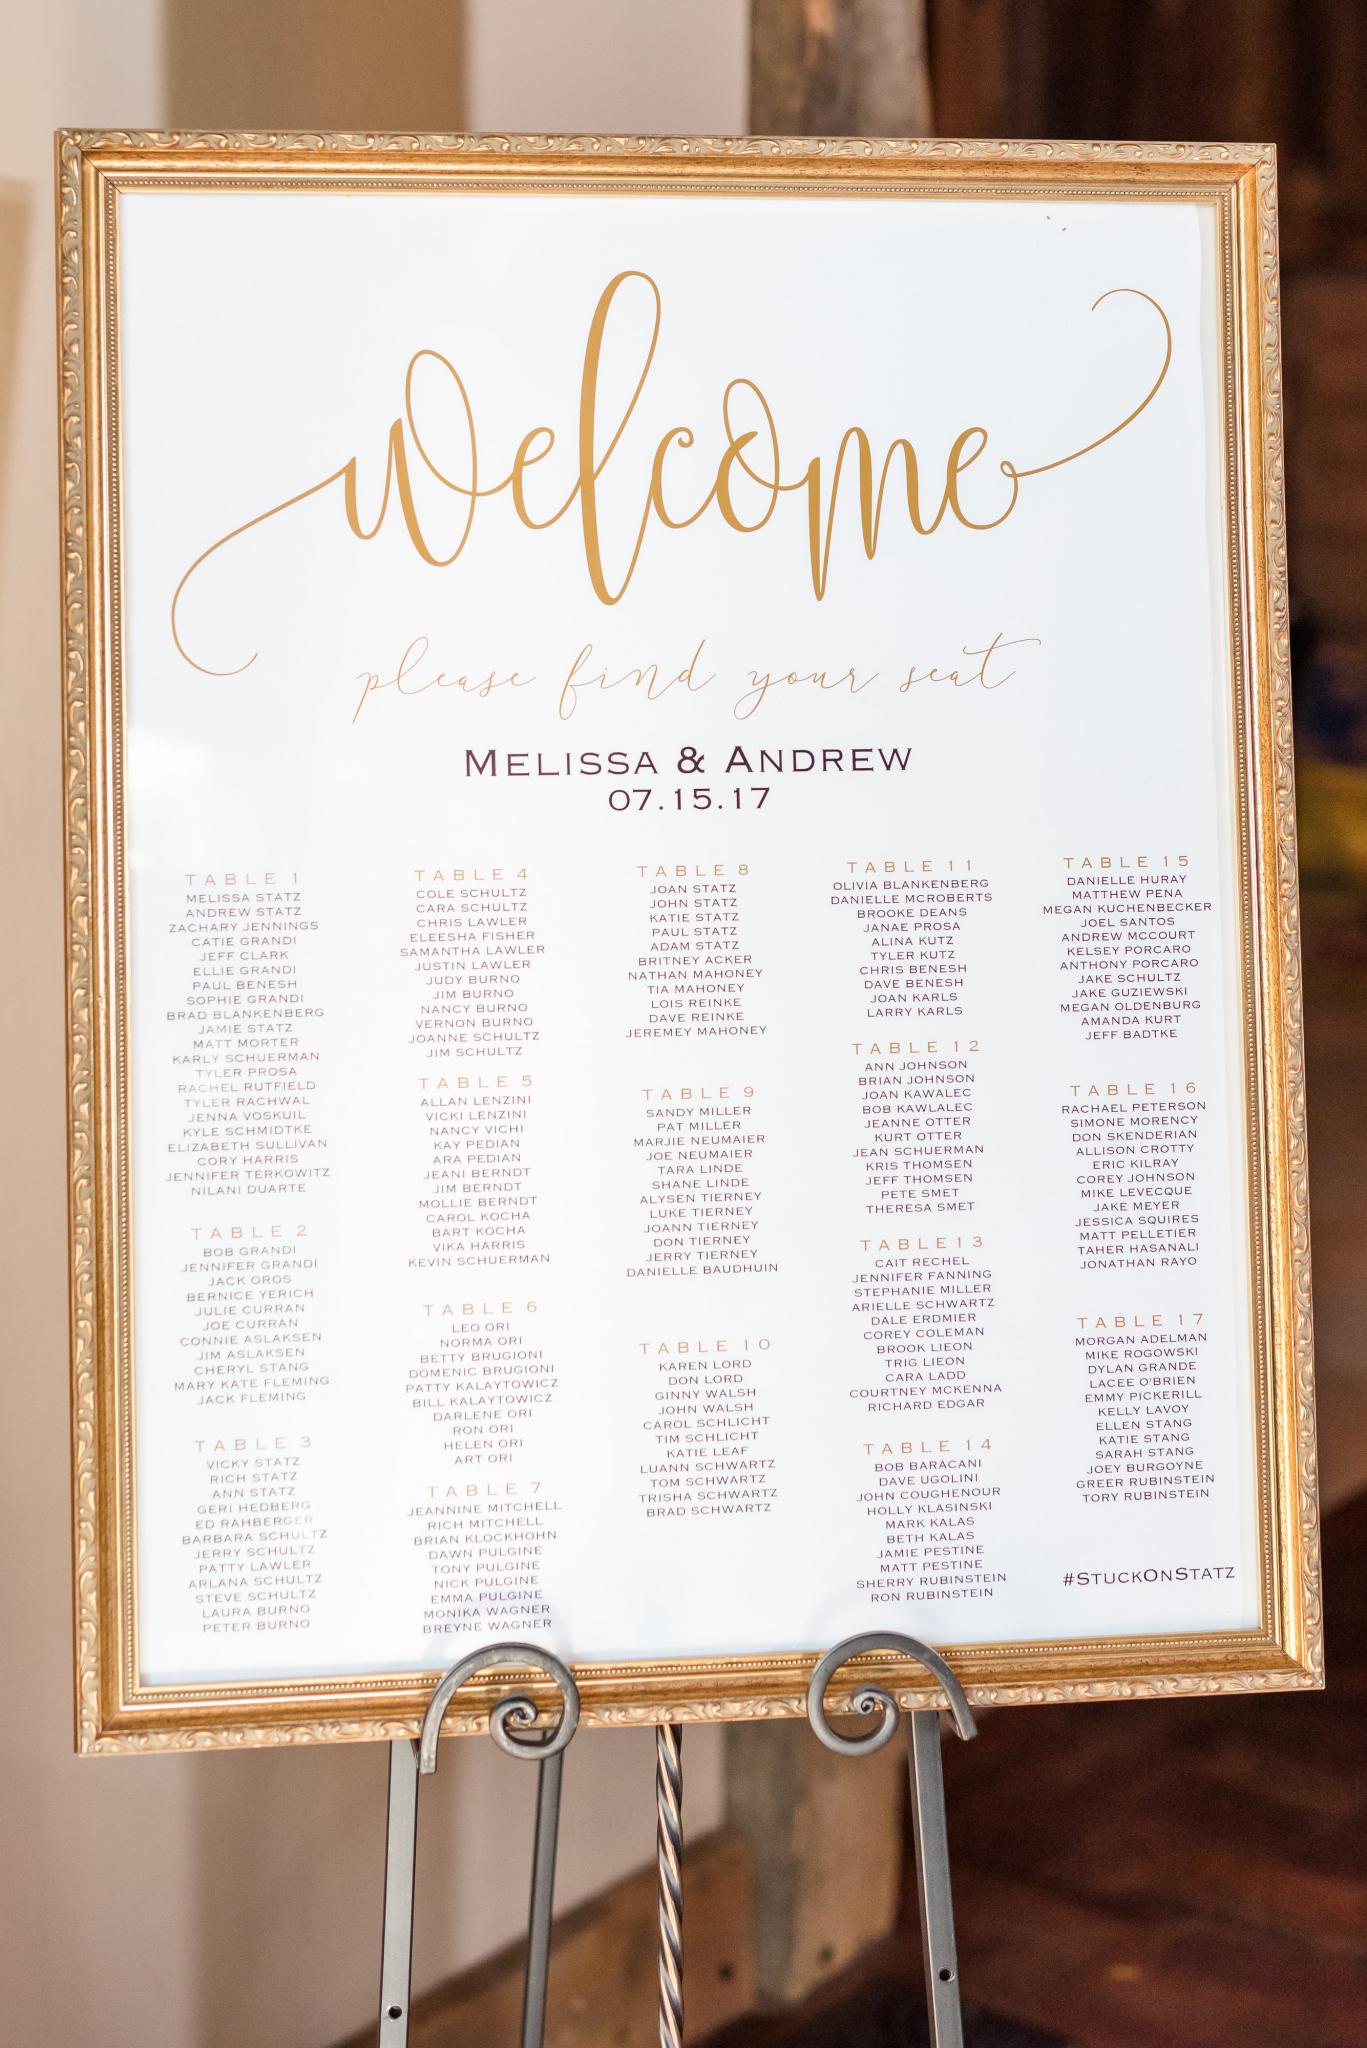 welcome
please find your seat
MELISSA & ANDREW
07.15.17
TABLE 1
MELISSA STATZ
ANDREW STATZ
ZACHARY JENNINGS
CATIE GRANDI
JEFF CLARK
ELLIE GRANDI
PAUL BENESH
SOPHIE GRANDI
BRAD BLANKENBERG
JAMIE STATZ
MATT MORTER
KARLY SCHUERMAN
TYLER PROSA
RACHEL RUTFIELD
TYLER RACHWAL
JENNA VOSKUIL
KYLE SCHMIDTKE
ELIZABETH SULLIVAN
CORY HARRIS
JENNIFER TERKOWITZ
NILANI DUARTE
TABLE 2
BOB GRANDI
JENNIFER GRANDI
JACK OROS
BERNICE YERICH
JULIE CURRAN
JOE CURRAN
CONNIE ASLAKSEN
JIM ASLAKSEN
CHERYL STANG
MARY KATE FLEMING
JACK FLEMING
TABLE 3
VICKY STATZ
RICH STATZ
ANN STATZ
GERI HEDBERG
ED RAHBERGER
BARBARA SCHULTZ
JERRY SCHULTZ
PATTY LAWLER
ARLANA SCHULTZ
STEVE SCHULTZ
LAURA BURNO
PETER BURNO
TABLE 4
COLE SCHULTZ
CARA SCHULTZ
CHRIS LAWLER
ELEESHA FISHER
SAMANTHA LAWLER
JUSTIN LAWLER
JUDY BURNO
JIM BURNO
NANCY BURNO
VERNON BURNO
JOANNE SCHULTZ
JIM SCHULTZ
TABLE 5
ALLAN LENZINI
VICKI LENZINI
NANCY VICHI
KAY PEDIAN
ARA PEDIAN
JEANI BERNDT
JIM BERNDT
MOLLIE BERNDT
CAROL KOCHA
BART KOCHA
VIKA HARRIS
KEVIN SCHUERMAN
TABLE 6
LEO ORI
NORMA ORI
BETTY BRUGIONI
DOMENIC BRUGIONI
PATTY KALAYTOWICZ
BILL KALAYTOWICZ
DARLENE ORI
RON ORI
HELEN ORI
ART ORI
TABLE 7
JEANNINE MITCHELL
RICH MITCHELL
BRIAN KLOCKHOHN
DAWN PULGINE
TONY PULGINE
NICK PULGINE
EMMA PULGINE
MONIKA WAGNER
BREYNE WAGNER
TABLE 8
JOAN STATZ
JOHN STATZ
KATIE STATZ
PAUL STATZ
ADAM STATZ
BRITNEY ACKER
NATHAN MAHONEY
TIA MAHONEY
LOIS REINKE
DAVE REINKE
JEREMEY MAHONEY
TABLE 9
SANDY MILLER
PAT MILLER
MARJIE NEUMAIER
JOE NEUMAIER
TARA LINDE
SHANE LINDE
ALYSEN TIERNEY
LUKE TIERNEY
JOANN TIERNEY
DON TIERNEY
JERRY TIERNEY
DANIELLE BAUDHUIN
TABLE 10
KAREN LORD
DON LORD
GINNY WALSH
JOHN WALSH
CAROL SCHLICHT
TIM SCHLICHT
KATIE LEAF
LUANN SCHWARTZ
TOM SCHWARTZ
TRISHA SCHWARTZ
BRAD SCHWARTZ
TABLE 11
OLIVIA BLANKENBERG
DANIELLE MCROBERTS
BROOKE DEANS
JANAE PROSA
ALINA KUTZ
TYLER KUTZ
CHRIS BENESH
DAVE BENESH
JOAN KARLS
LARRY KARLS
TABLE 12
ANN JOHNSON
BRIAN JOHNSON
JOAN KAWALEC
BOB KAWLALEC
JEANNE OTTER
KURT OTTER
JEAN SCHUERMAN
KRIS THOMSEN
JEFF THOMSEN
PETE SMET
THERESA SMET
TABLE 13
CAIT RECHEL
JENNIFER FANNING
STEPHANIE MILLER
ARIELLE SCHWARTZ
DALE ERDMIER
COREY COLEMAN
BROOK LIEON
TRIG LIEON
CARA LADD
COURTNEY MCKENNA
RICHARD EDGAR
TABLE 14
BOB BARACANI
DAVE UGOLINI
JOHN COUGHENOUR
HOLLY KLASINSKI
MARK KALAS
BETH KALAS
JAMIE PESTINE
MATT PESTINE
SHERRY RUBINSTEIN
RON RUBINSTEIN
TABLE 15
DANIELLE HURAY
MATTHEW PENA
MEGAN KUCHENBECKER
JOEL SANTOS
ANDREW MCCOURT
KELSEY PORCARO
ANTHONY PORCARO
JAKE SCHULTZ
JAKE GUZIEWSKI
MEGAN OLDENBURG
AMANDA KURT
JEFF BADTKE
TABLE 16
RACHAEL PETERSON
SIMONE MORENCY
DON SKENDERIAN
ALLISON CROTTY
ERIC KILRAY
COREY JOHNSON
MIKE LEVECQUE
JAKE MEYER
JESSICA SQUIRES
MATT PELLETIER
TAHER HASANALI
JONATHAN RAYO
TABLE 17
MORGAN ADELMAN
MIKE ROGOWSKI
DYLAN GRANDE
LACEE O'BRIEN
EMMY PICKERILL
KELLY LAVOY
ELLEN STANG
KATIE STANG
SARAH STANG
JOEY BURGOYNE
GREER RUBINSTEIN
TORY RUBINSTEIN
#STUCKONSTATZ